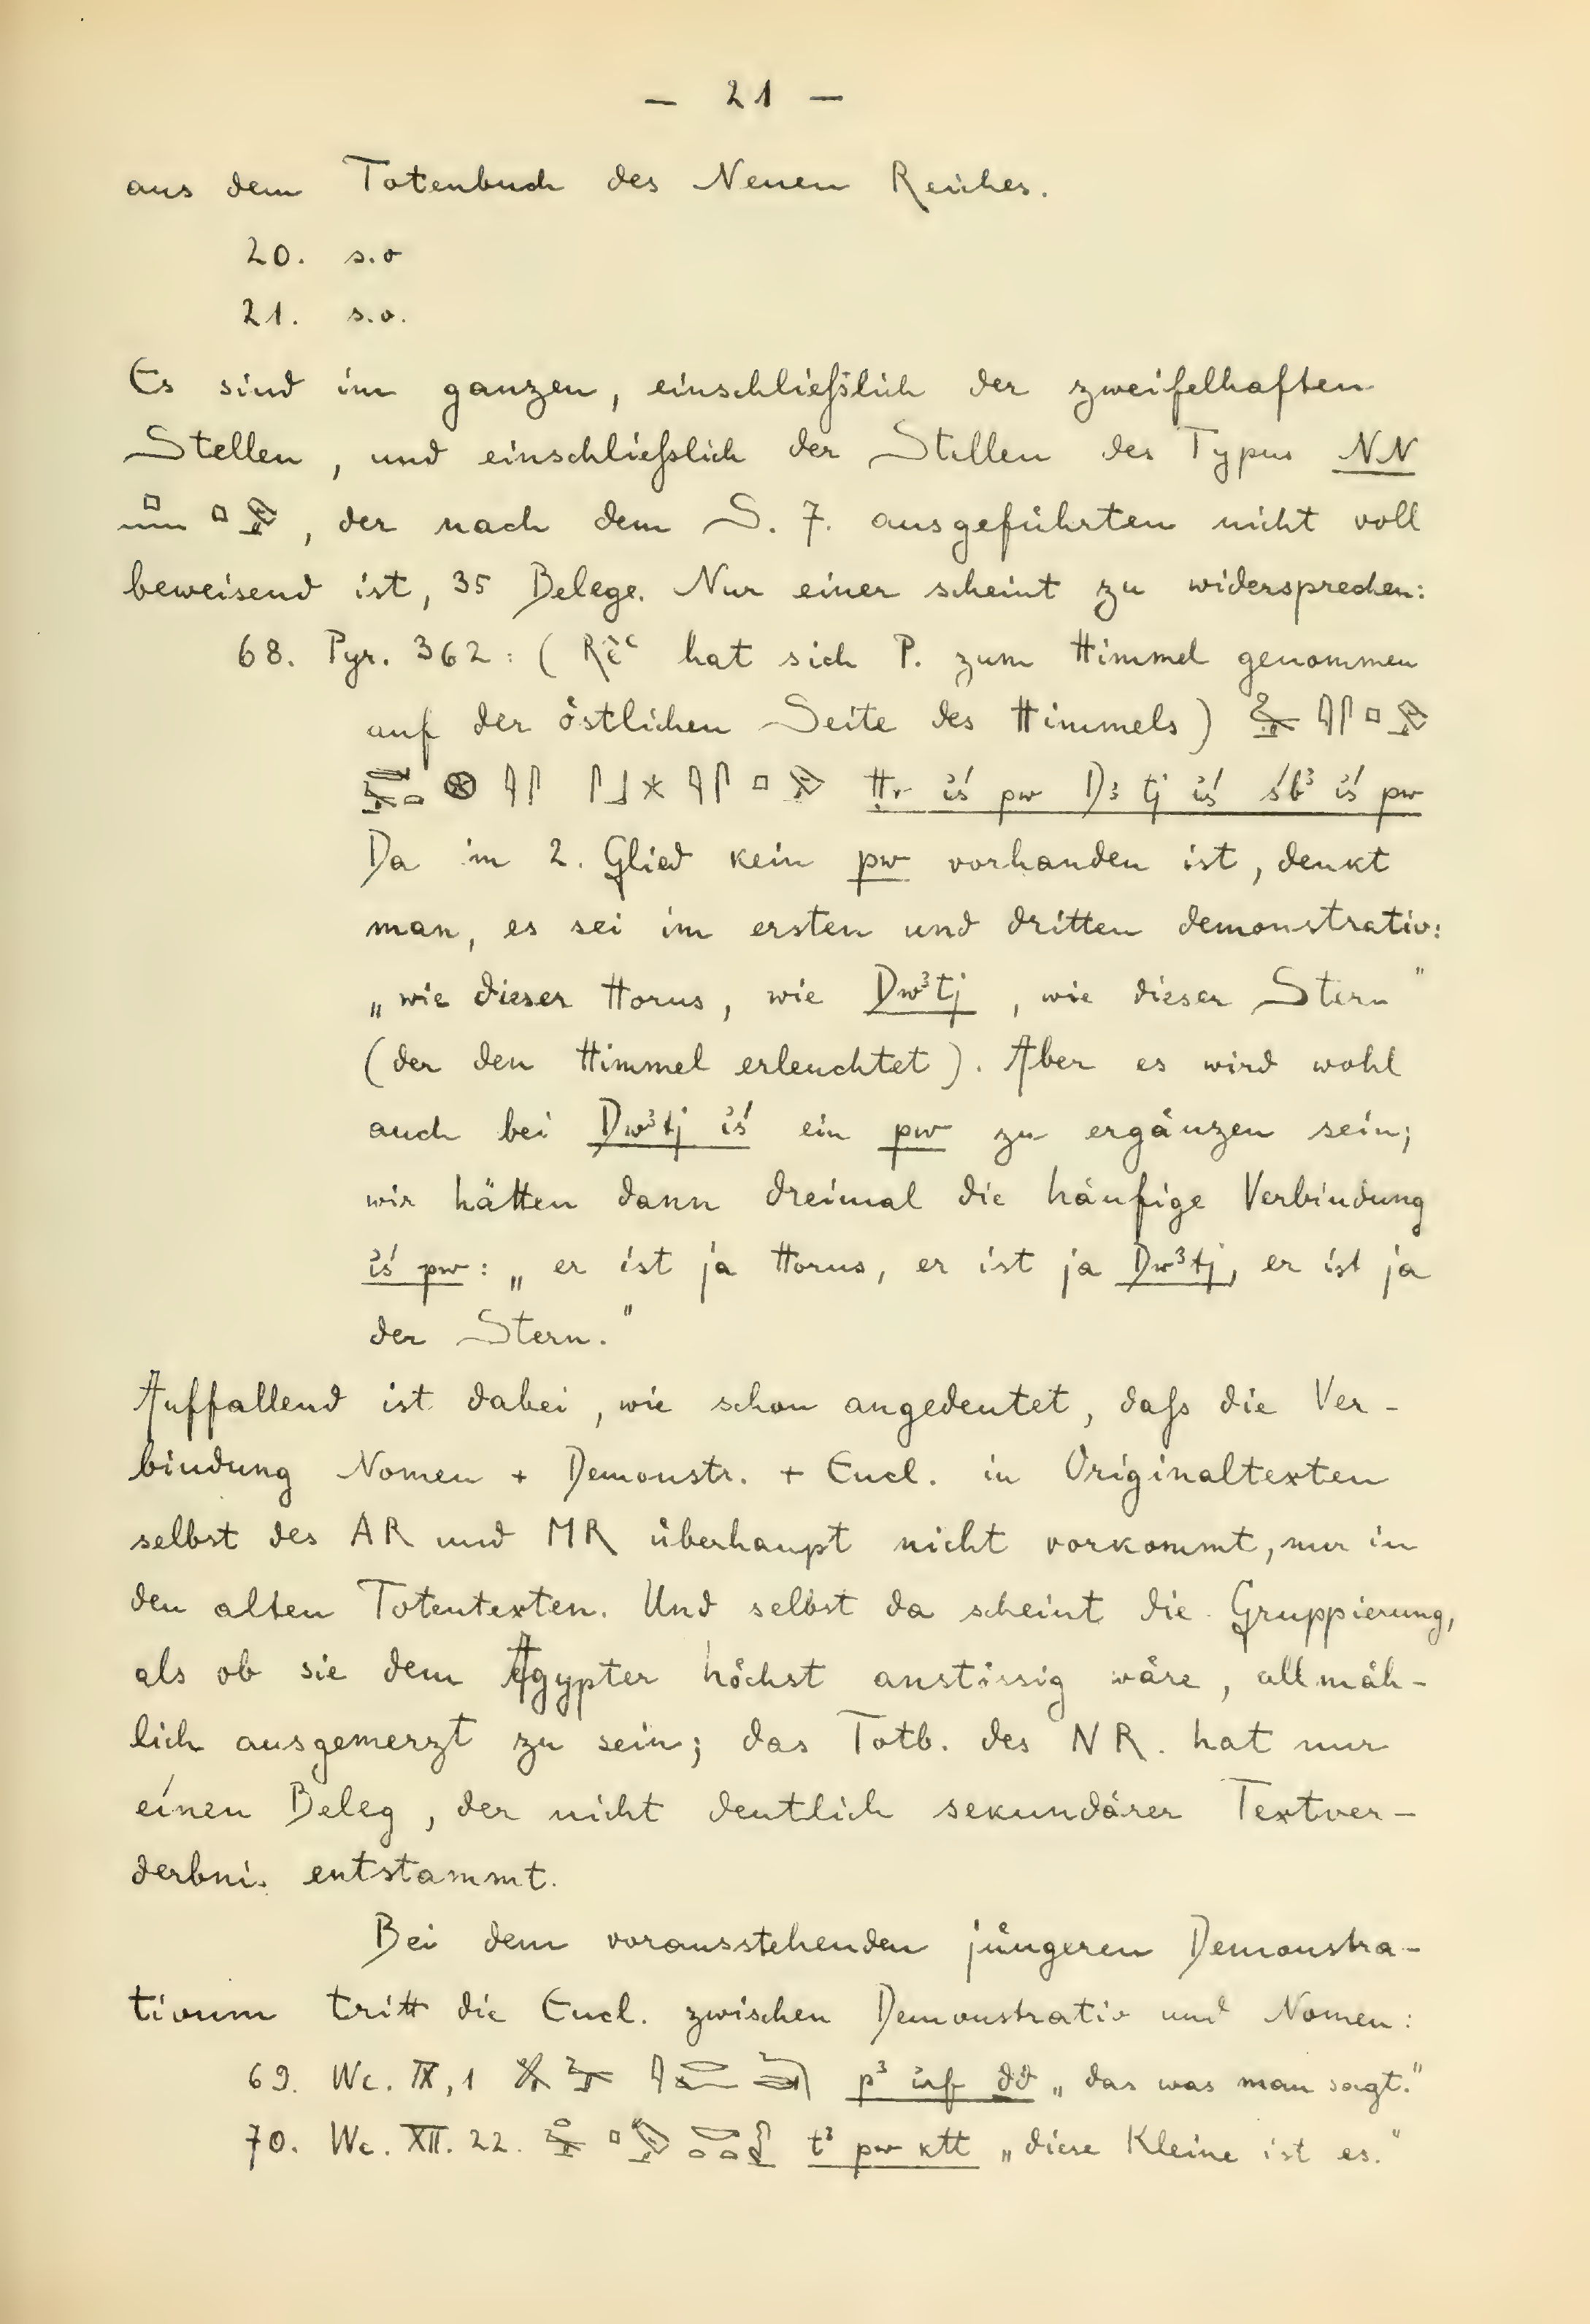 — 21 —
aus dem Totenbuch des Neuen Reiches.
20. s.o
21. s.o.
Es sind im ganzen, einschließlich der zweifelhaften
Stellen, und einschließlich der Stellen des Typus NN
, der nach dem S. 7. ausgeführten nicht voll
beweisend ist, 35 Belege. Nur einer scheint zu widersprechen:
68. Pyr. 362: ( hat sich P. zum Himmel genommen
auf der östlichen Seite des Himmels)
Ḥr ı͗ś pw D³tj ı͗ś śb³ ı͗ś pw
Da im 2. Glied kein pw vorhanden ist, denkt
man, es sei im ersten und dritten demonstrativ:
„wie dieser Horus, wie Dw³tj, wie dieser Stern"
(der den Himmel erleuchtet). Aber es wird wohl
auch bei Dw³tj ı͗ś ein pw zu ergänzen sein;
wir hätten dann dreimal die häufige Verbindung
ı͗ś pw: „er ist ja Horus, er ist ja Dw³tj, er ist ja
der Stern."
Auffallend ist dabei, wie schon angedeutet, daß die Ver-
bindung Nomen + Demonstr. + Encl. in Originaltexten
selbst des AR und MR überhaupt nicht vorkommt, nur in
den alten Totentexten. Und selbst da scheint die Gruppierung,
als ob sie dem Ägypter höchst anstössig wäre, allmäh-
lich ausgemerzt zu sein; das Totb. des NR. hat nur
einen Beleg, der nicht deutlich sekundärer Textver-
derbnis entstammt.
Bei dem vorausstehenden jüngeren Demonstra-
tivum tritt die Encl. zwischen Demonstrativ und Nomen:
69. We. IX, 1 p³ ı͗rf ḏd „das was man sagt."
70. We. XII. 22. t³ pw ktt „diese Kleine ist es."